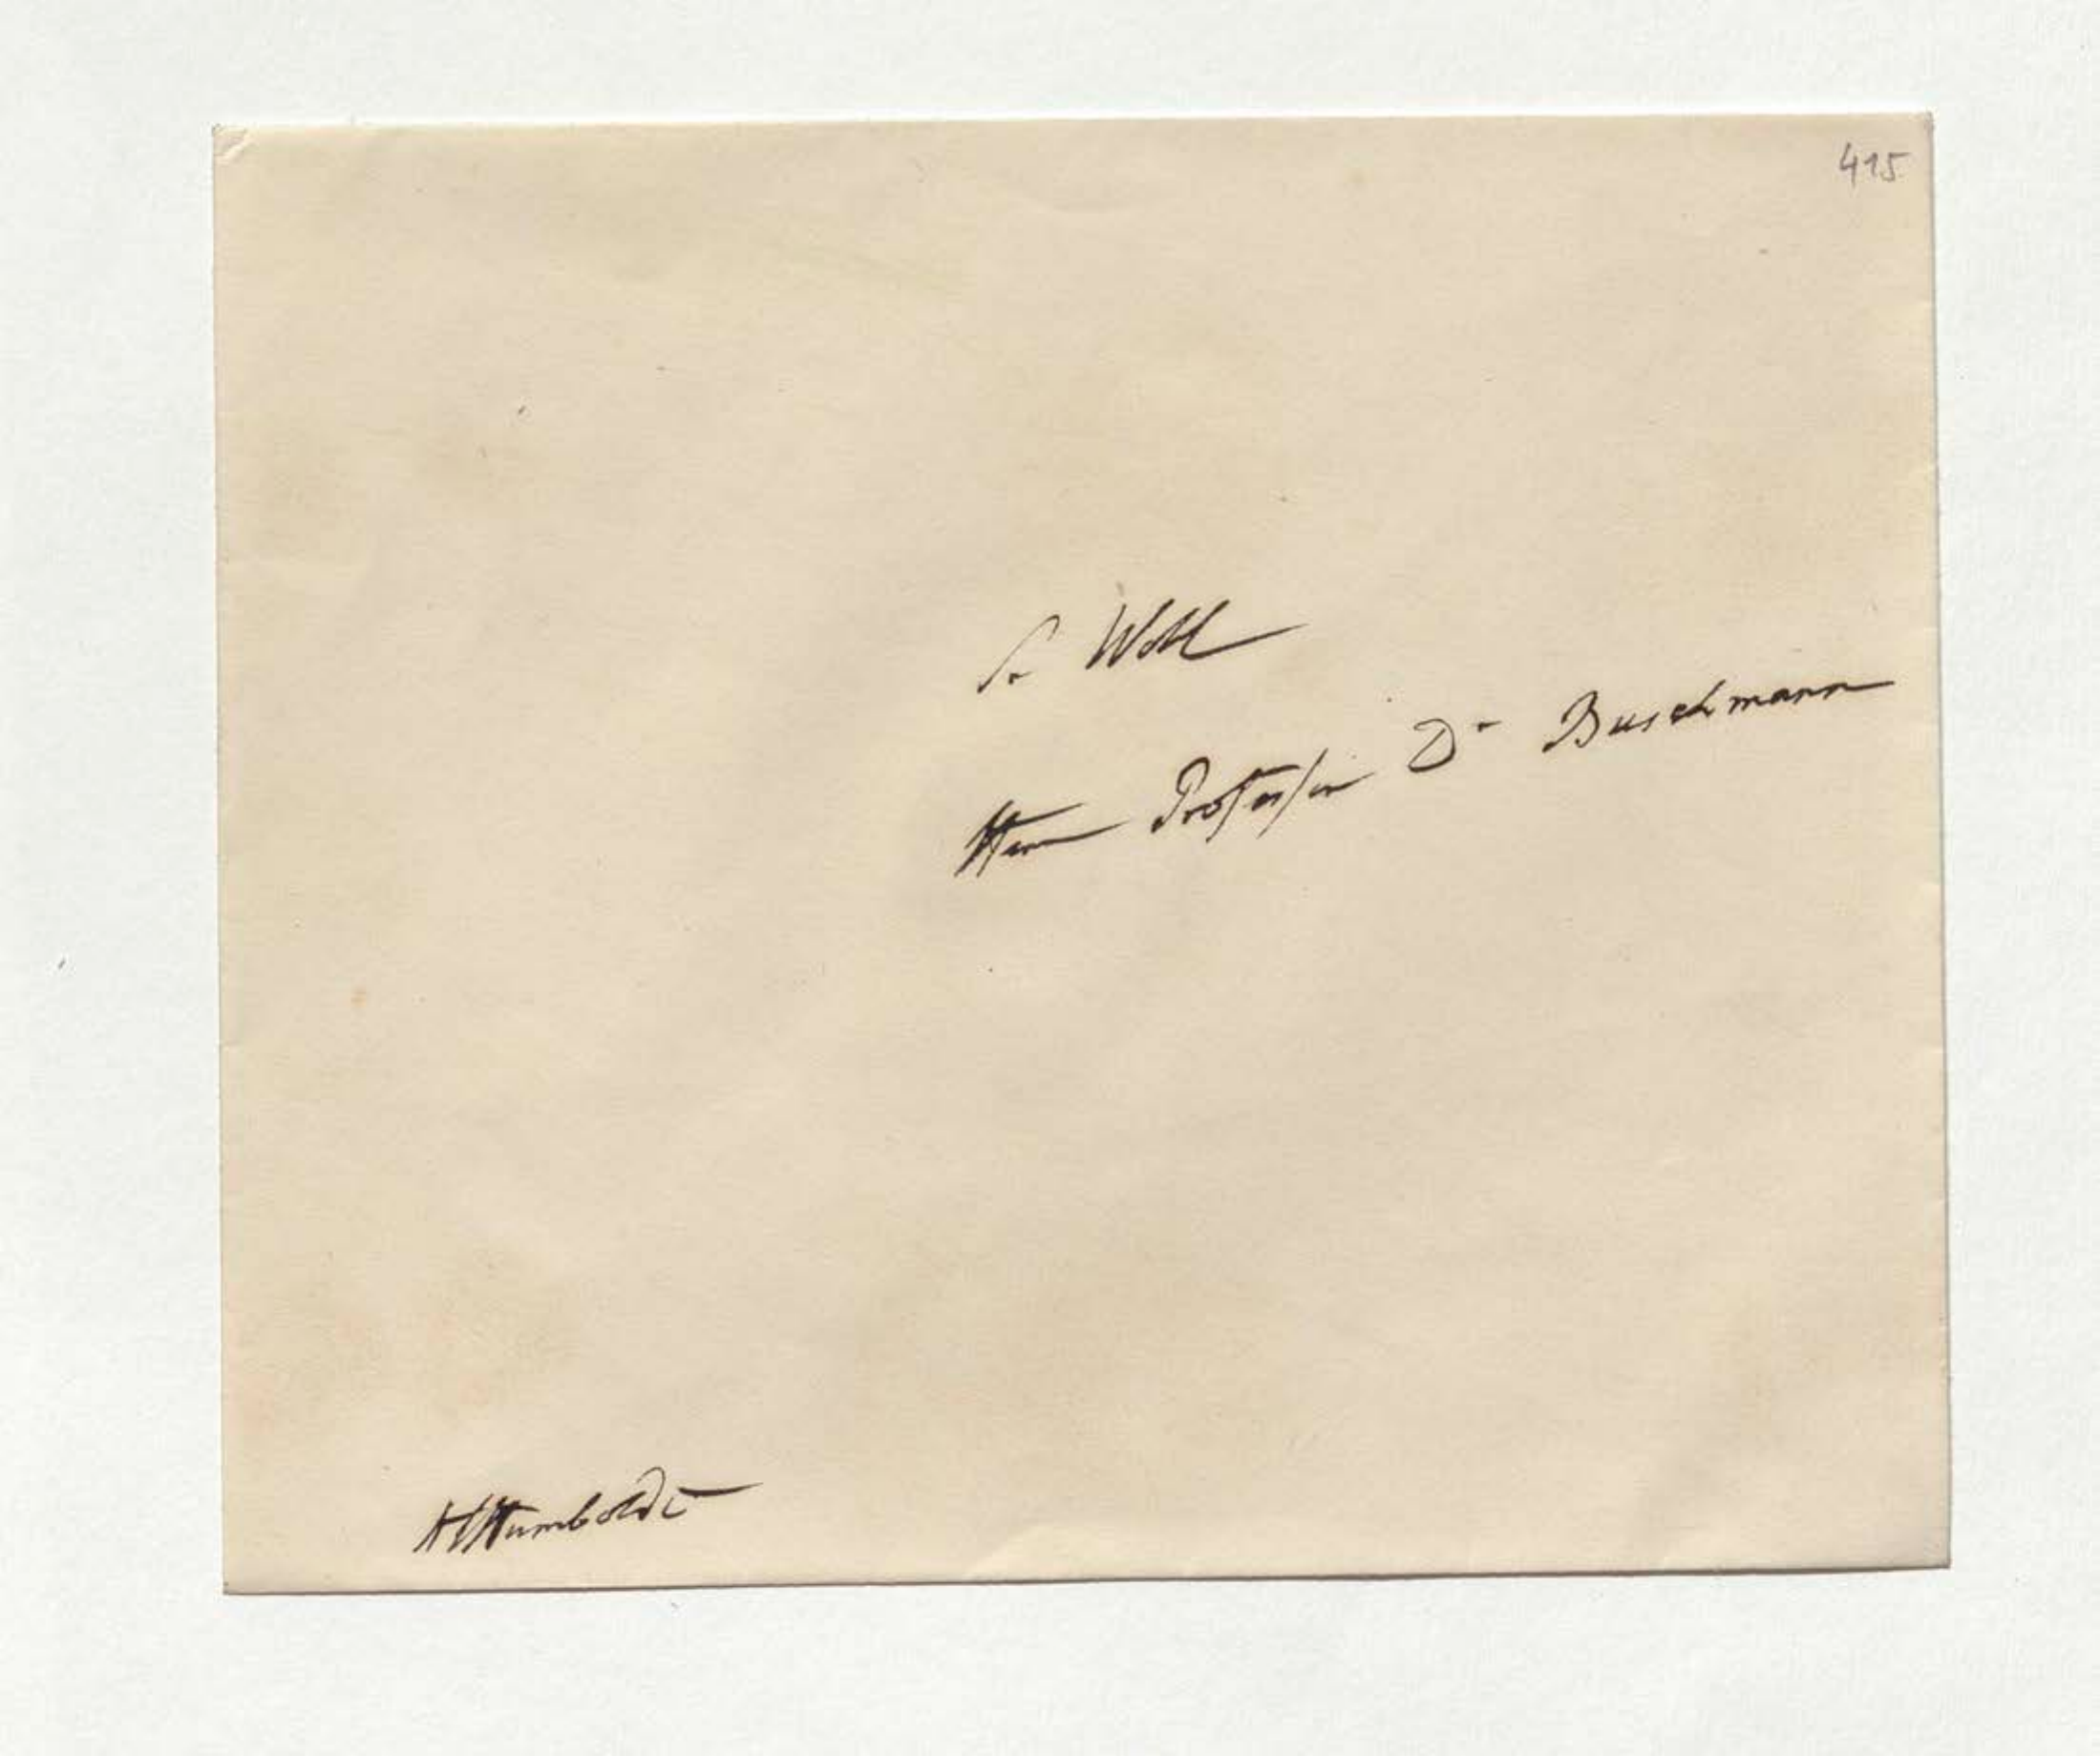 415
Sr Wohl
Herrn Professor Dr Buschmann
AvHumboldt